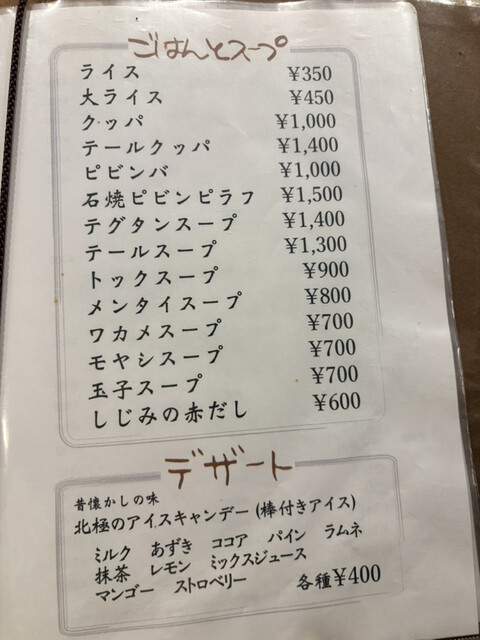 ごはんとスープ
ライス ¥350
大ライス ¥450
クッパ ¥1,000
テールクッパ ¥1,400
ピビンバ ¥1,000
石焼ピビンピラフ ¥1,500
テグタンスープ ¥1,400
テールスープ ¥1,300
トックスープ ¥900
メンタイスープ ¥800
ワカメスープ ¥700
モヤシスープ ¥700
玉子スープ ¥700
しじみの赤だし ¥600
デザート
昔懐かしの味
北極のアイスキャンデー (棒付きアイス)
ミルク あずき ココア パイン ラムネ
抹茶 レモン ミックスジュース
マンゴー ストロベリー 各種¥400